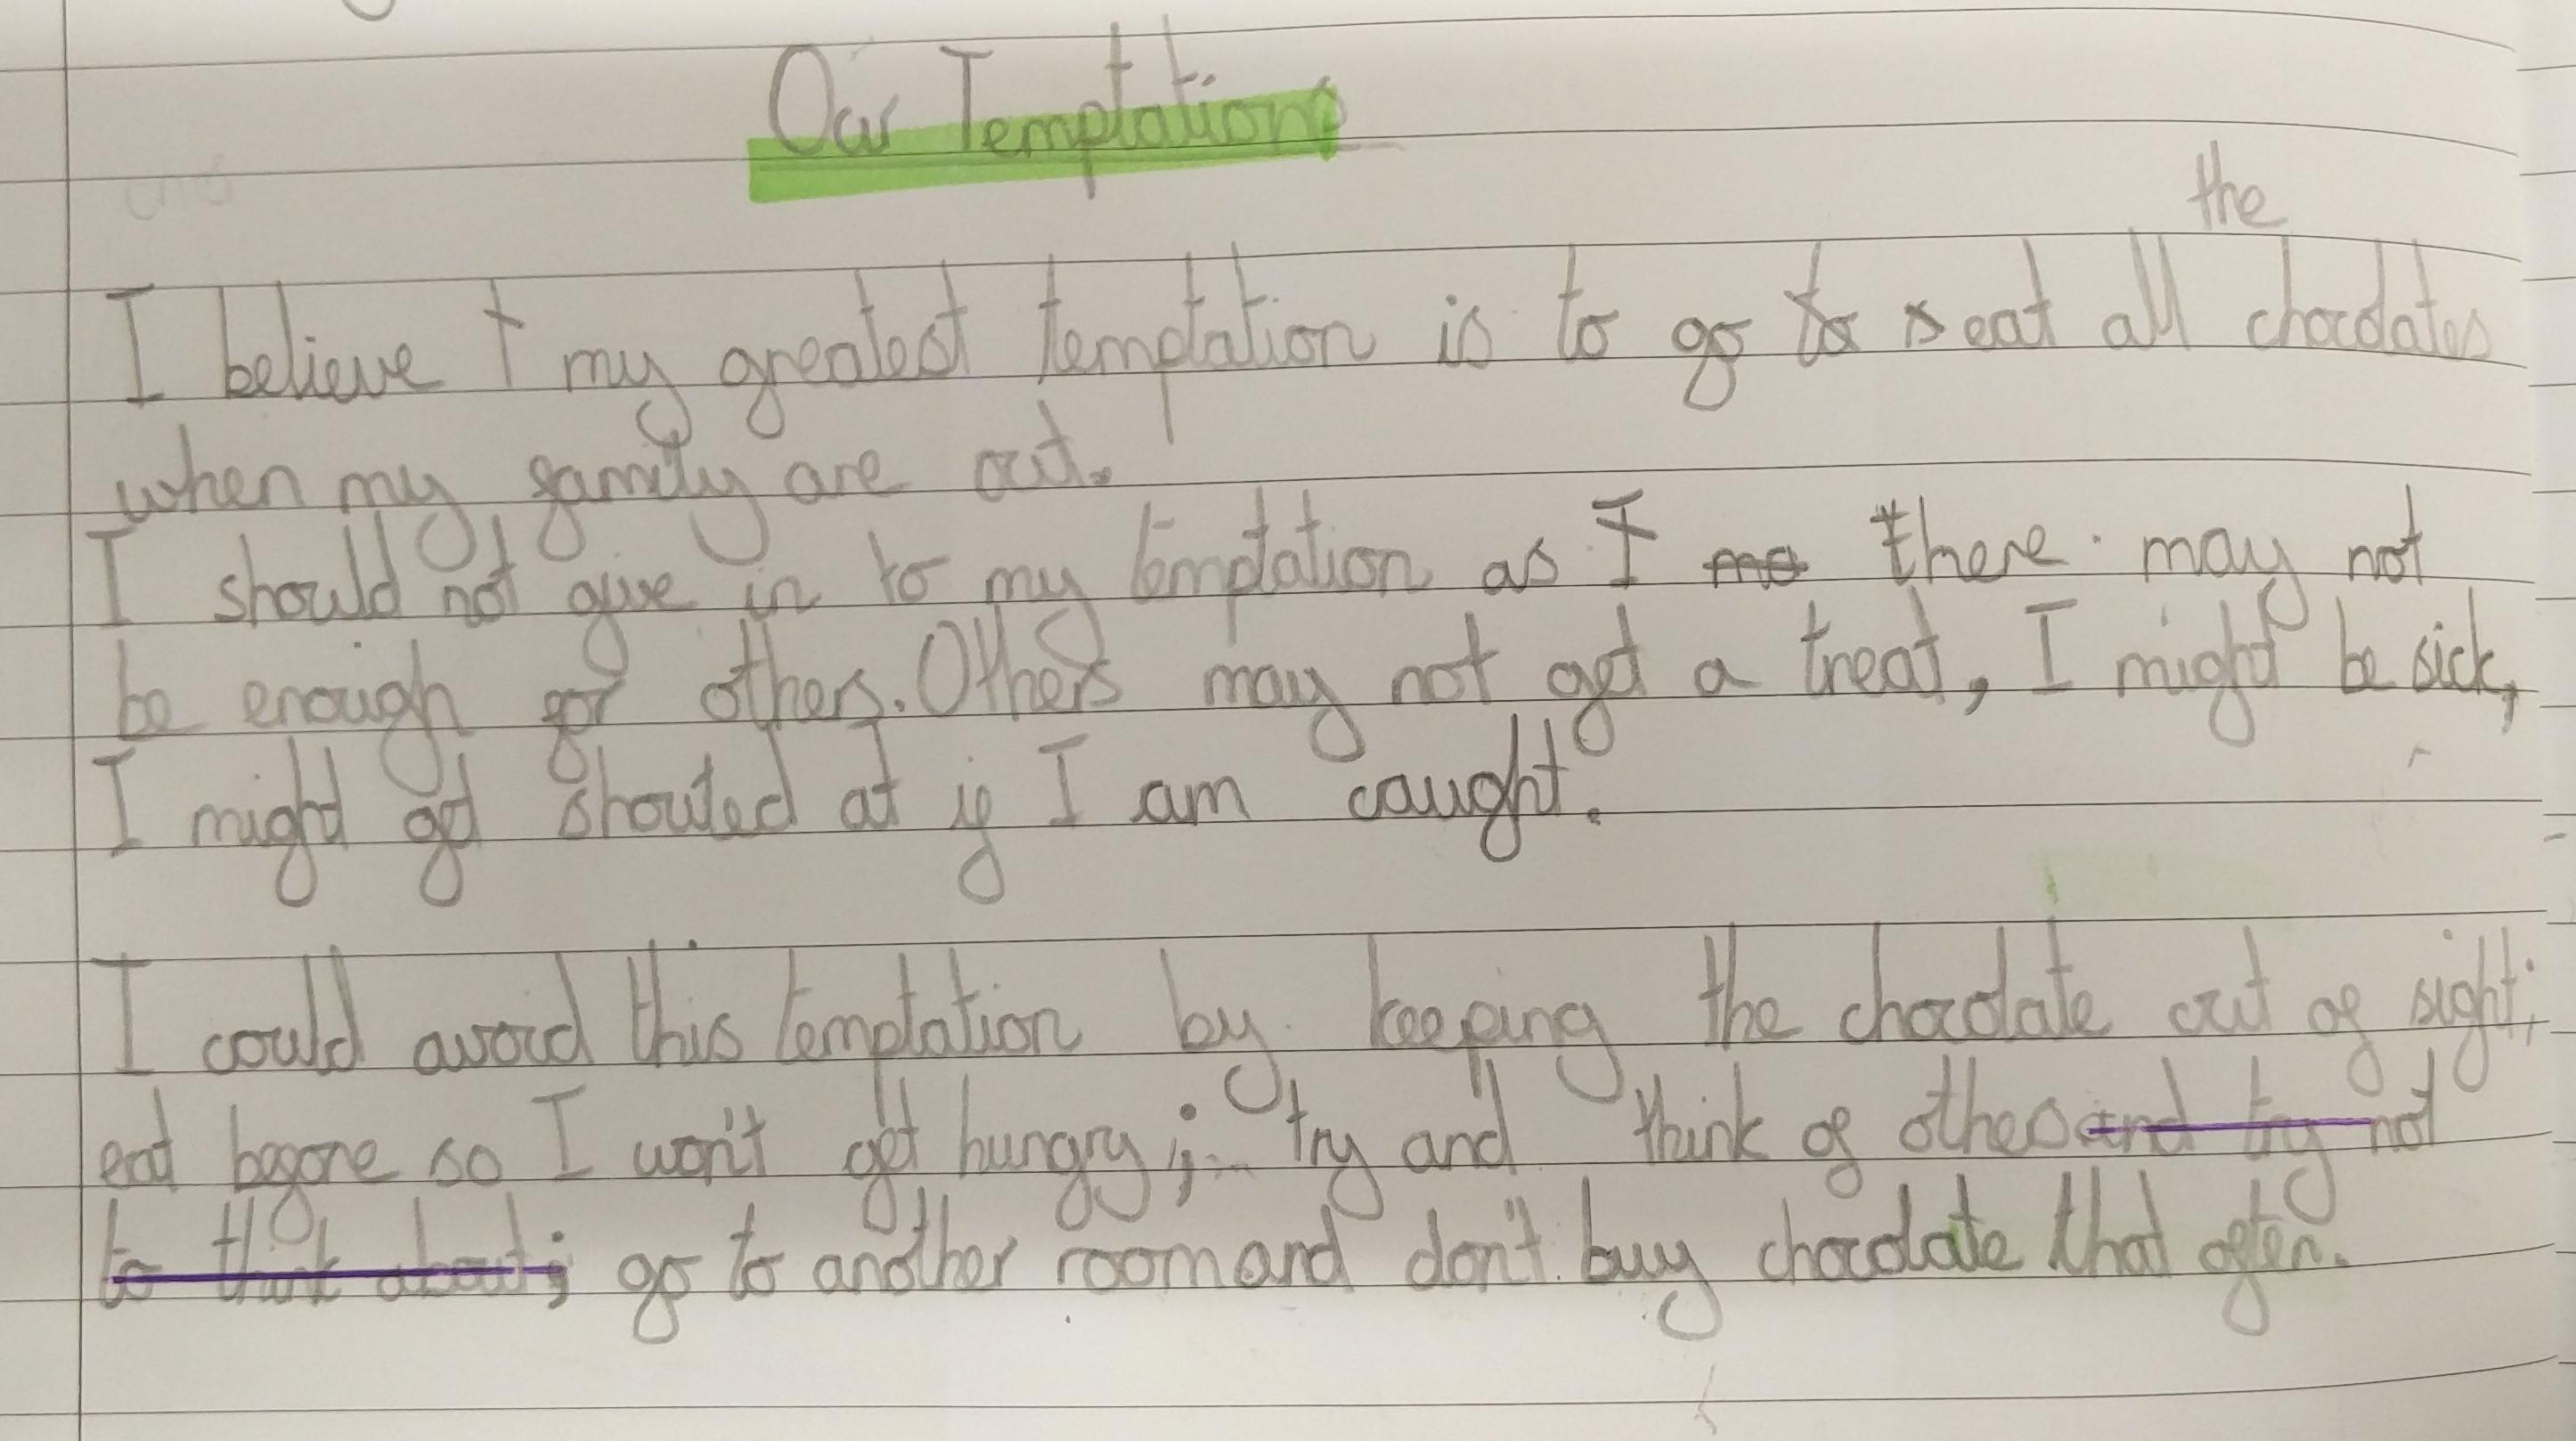 Our Temptations
the
I believe t my greatest temptation is to go to s eat all chocolates
when my family are out.
I should not give in to my temptation as I ma there may not
be enough for others. Others may not get a treat, I might be sick,
I might get shouted at if I am caught.
I could avoid this temptation by keeping the chocolate out of sight;
eat before so I won't get hungry; try and think of others and try not
to think about; go to another room and don't buy chocolate that often.